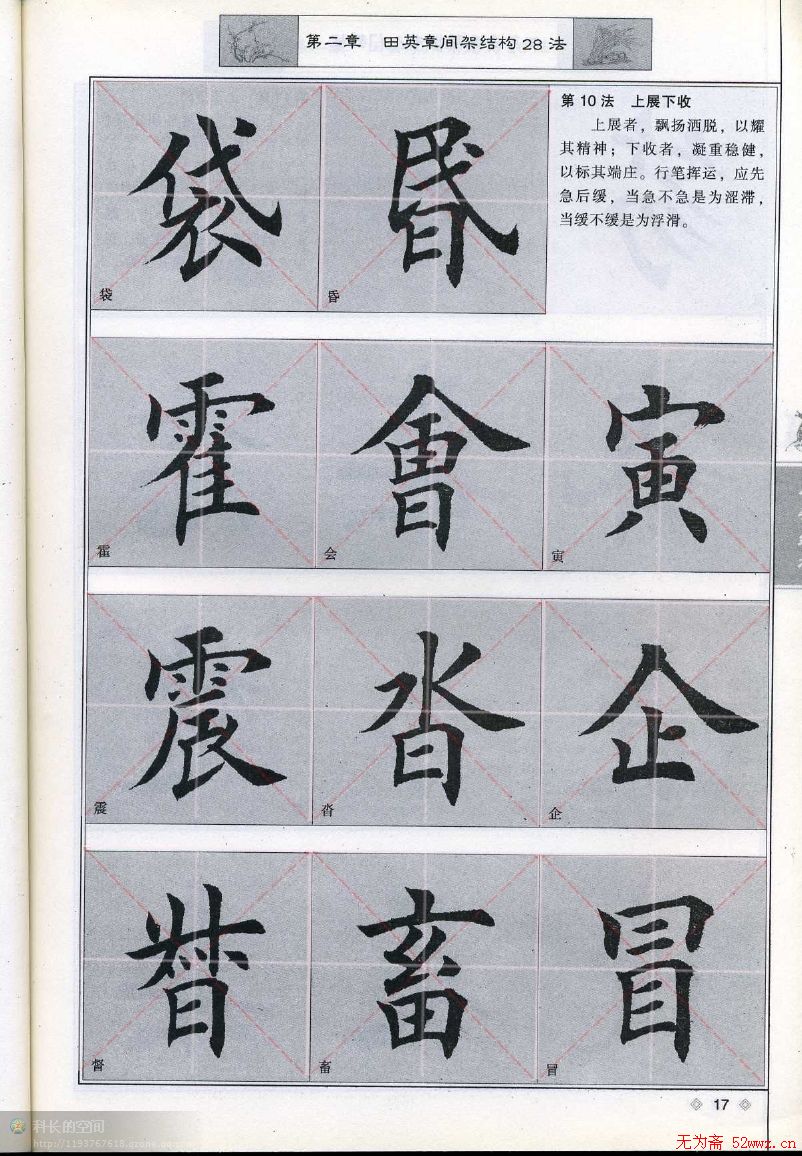 第二章 田英章间架结构28法
第10法 上展下收
上展者,飘扬洒脱,以耀
其精神;下收者,凝重稳健,
以标其端庄。行笔挥运,应先
急后缓,当急不急是为涩滞,
当缓不缓是为浮滑。
袋 昏
袋 昏
霍 會 寅
霍 会 寅
震 沓 企
震 沓 企
督 畜 冒
督 畜 冒
17
科长的空间
http://1193767618.qzone.qq.com
无为斋 52wwz.cn